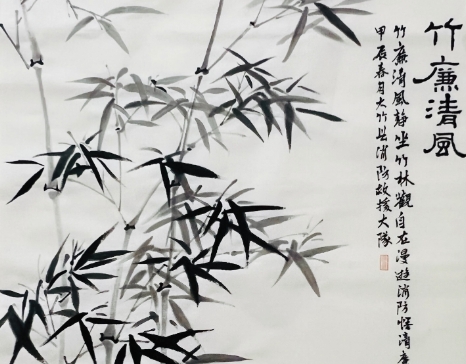 竹廉清風
竹廉清風静坐竹林觀自在漫遊消防怪清廉
甲辰春月大竹县消防救援大隊